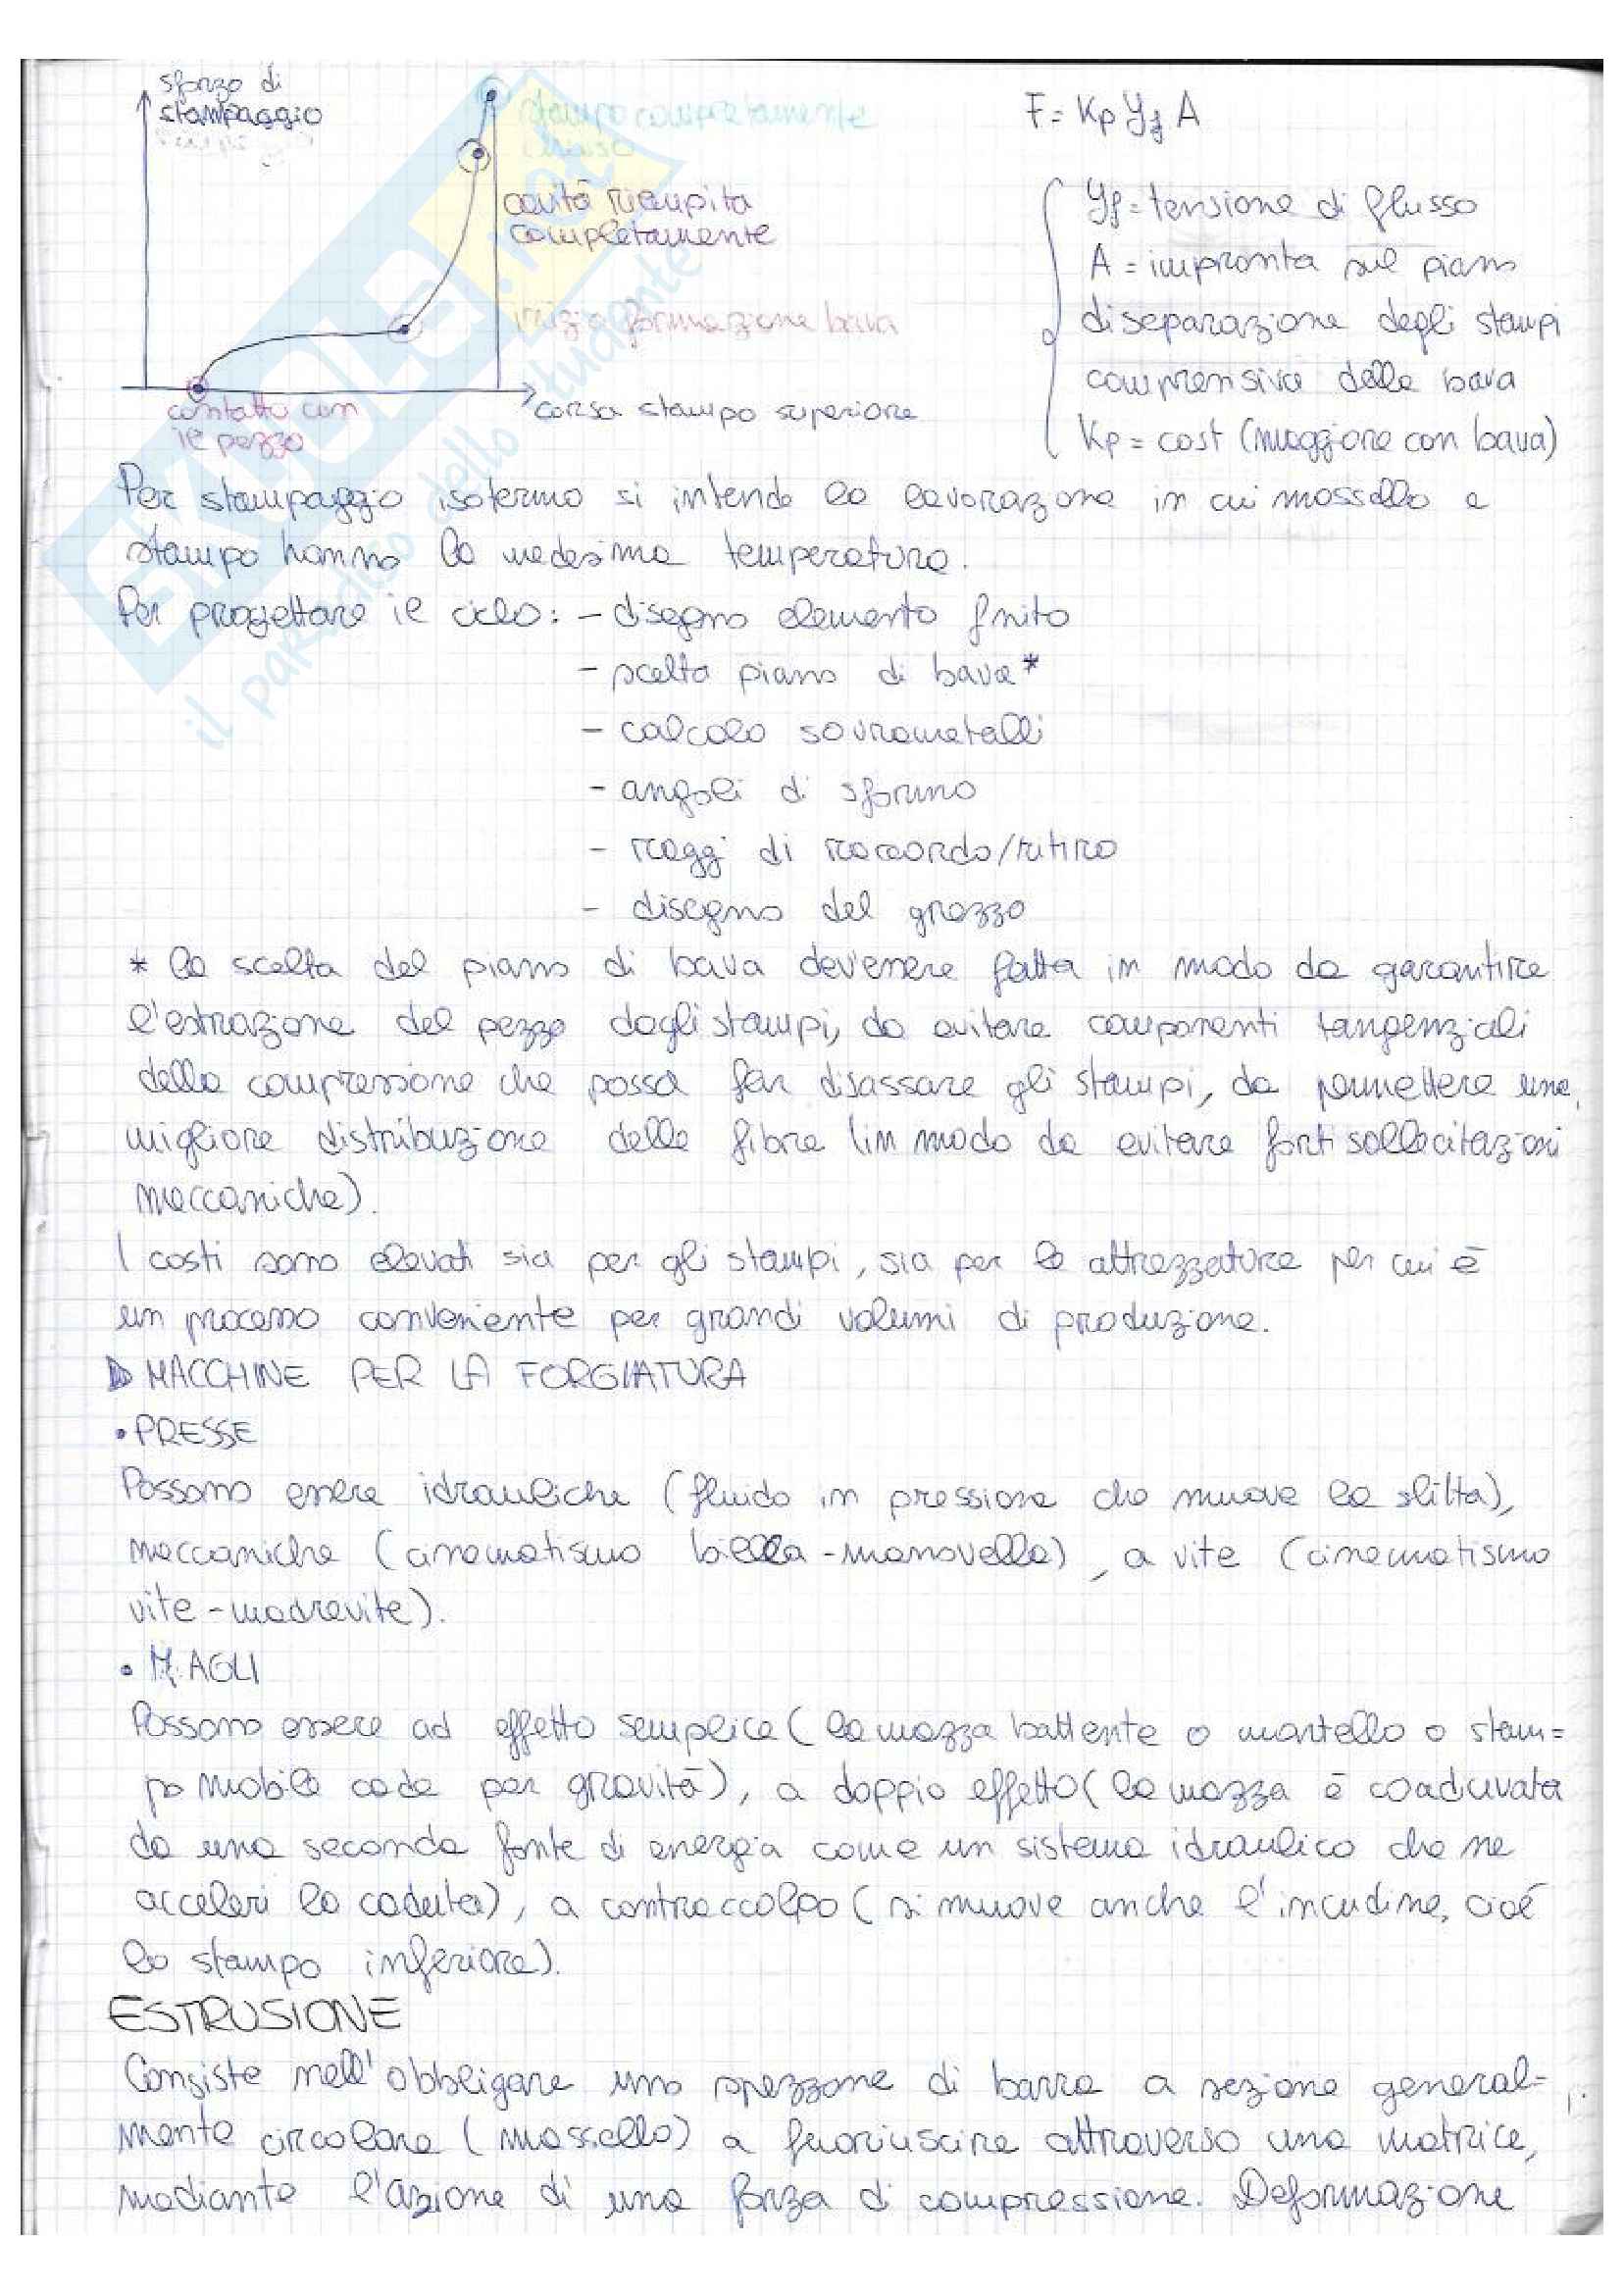 sforzo di
stampaggio
stampo completamente
chiuso
cavità riempita
completamente
inizio formazione bava
contatto con
il pezzo
corsa stampo superiore
F = Kp Yf A
Yf = tensione di flusso
A = impronta sul piano
di separazione degli stampi
comprensiva della bava
Kp = cost (maggiore con bava)
Per stampaggio isotermo si intende la lavorazione in cui massello e
stampo hanno la medesima temperatura.
Per progettare il ciclo: - disegno elemento finito
- scelta piano di bava*
- calcolo sovrametalli
- angoli di sformo
- raggi di raccordo/ritiro
- disegno del grezzo
* la scelta del piano di bava dev'essere fatta in modo da garantire
l'estrazione del pezzo dagli stampi, da evitare componenti tangenziali
della compressione che possa far disassare gli stampi, da permettere una
migliore distribuzione delle fibre (in modo da evitare forti sollecitazioni
meccaniche).
I costi sono elevati sia per gli stampi, sia per le attrezzature per cui è
un processo conveniente per grandi volumi di produzione.
MACCHINE PER LA FORGIATURA
• PRESSE
Possono essere idrauliche (fluido in pressione che muove la slitta),
meccaniche (cinematismo biella-manovella), a vite (cinematismo
vite-madrevite).
• MAGLI
Possono essere ad effetto semplice (la mazza battente o martello o stam=
po mobile cade per gravità), a doppio effetto (la mazza è coadiuvata
da una seconda fonte di energia come un sistema idraulico che ne
acceleri la caduta), a contraccolpo (si muove anche l'incudine, cioè
lo stampo inferiore).
ESTRUSIONE
Consiste nell'obbligare uno spezzone di barra a sezione general=
mente circolare (massello) a fuoriuscire attraverso una matrice,
mediante l'azione di una forza di compressione. Deformazione
SKUOLA.net
il paradiso dello studente